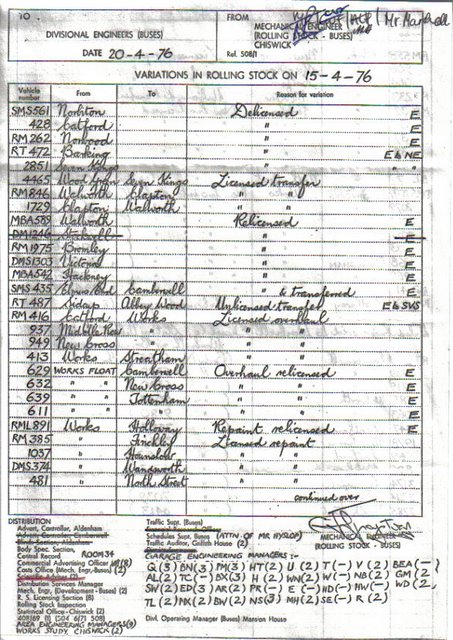 10.
DIVISIONAL ENGINEERS (BUSES)
DATE 20-4-76
FROM
MECHANICAL ENGINEER
(ROLLING STOCK - BUSES)
CHISWICK
Ref. 508/1
Mr Marshall
VARIATIONS IN ROLLING STOCK ON 15-4-76
Vehicle number From To Reason for variation
SMS 561 Norbiton Delicensed E
428 Catford " E
RM 262 Norwood " E
RT 472 Barking " E & NE
2851 Seven Kings " " "
4465 Wood Green Seven Kings Licensed transfer
RM 846 Walworth Clapton " "
1729 Clapton Walworth " "
MBA 589 Walworth Relicensed E
DM 1246 Stockwell " E
RM 1975 Bromley " E
DMS 1303 Victoria " E
MBA 542 Hackney " E
SMS 435 Elmers End Camberwell " & transferred E
RT 487 Sidcup Abbey Wood Unlicensed transfer E & SVS
RM 416 Catford Works Licensed overhaul
937 Middle Row " " "
949 New Cross " " "
413 Works Streatham " "
629 WORKS FLOAT Camberwell Overhaul relicensed E
632 " " New Cross " " E
639 " " Tottenham " " E
611 " " " " " E
RML 891 Works Holloway Repaint relicensed E
RM 385 " Finchley Licensed repaint
1037 " Hounslow " "
DMS 374 " Wandsworth " "
481 " North Street " "
continued over
MECHANICAL ENGINEER
(ROLLING STOCK - BUSES)
DISTRIBUTION
Advert. Controller, Aldenham
Advert. Controller, Camberwell
Body Spec. Section,
Central Record ROOM 34
Commercial Advertising Officer
Costs Office (Mech. Engr.-Buses) (2)
Scientific Adviser (2)
Distribution Services Manager
Mech. Engr. (Development - Buses) (2)
R. S. Licensing Section (8)
Rolling Stock Inspection
Statistical Office - Chiswick (2)
AREA ENGINEERING MANAGERS
WORKS STUDY, CHISWICK (2)
Traffic Supt. (Buses)
Schedules Supt. (Buses) (ATTN. OF MR HYSLOP)
Traffic Auditor, Griffith House (2)
GARAGE ENGINEERING MANAGERS:-
Q (3) BN (3) PM (3) HT (2) U (2) T (-) V (2) BEA (-)
AL (2) TC (-) BX (3) H (2) WN (2) W (-) NB (2) GM (2)
SW (2) ED (3) AR (2) PR (-) E (-) HD (-) HW (-) WD (2)
TL (2) NX (2) BW (2) NS (3) MH (2) SE (-) R (2)
Divl. Operating Manager (Buses) Mansion House